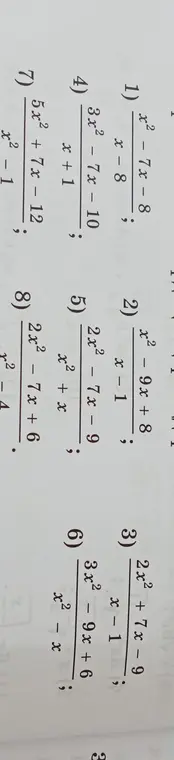 1) (x² − 7x − 8)/(x − 8); 2) (x² − 9x + 8)/(x − 1); 3) (2x² + 7x − 9)/(x − 1);
4) (3x² − 7x − 10)/(x + 1); 5) (2x² − 7x − 9)/(x² + x); 6) (3x² − 9x + 6)/(x² − x);
7) (5x² + 7x − 12)/(x² − 1); 8) (2x² − 7x + 6)/(x² − 4).